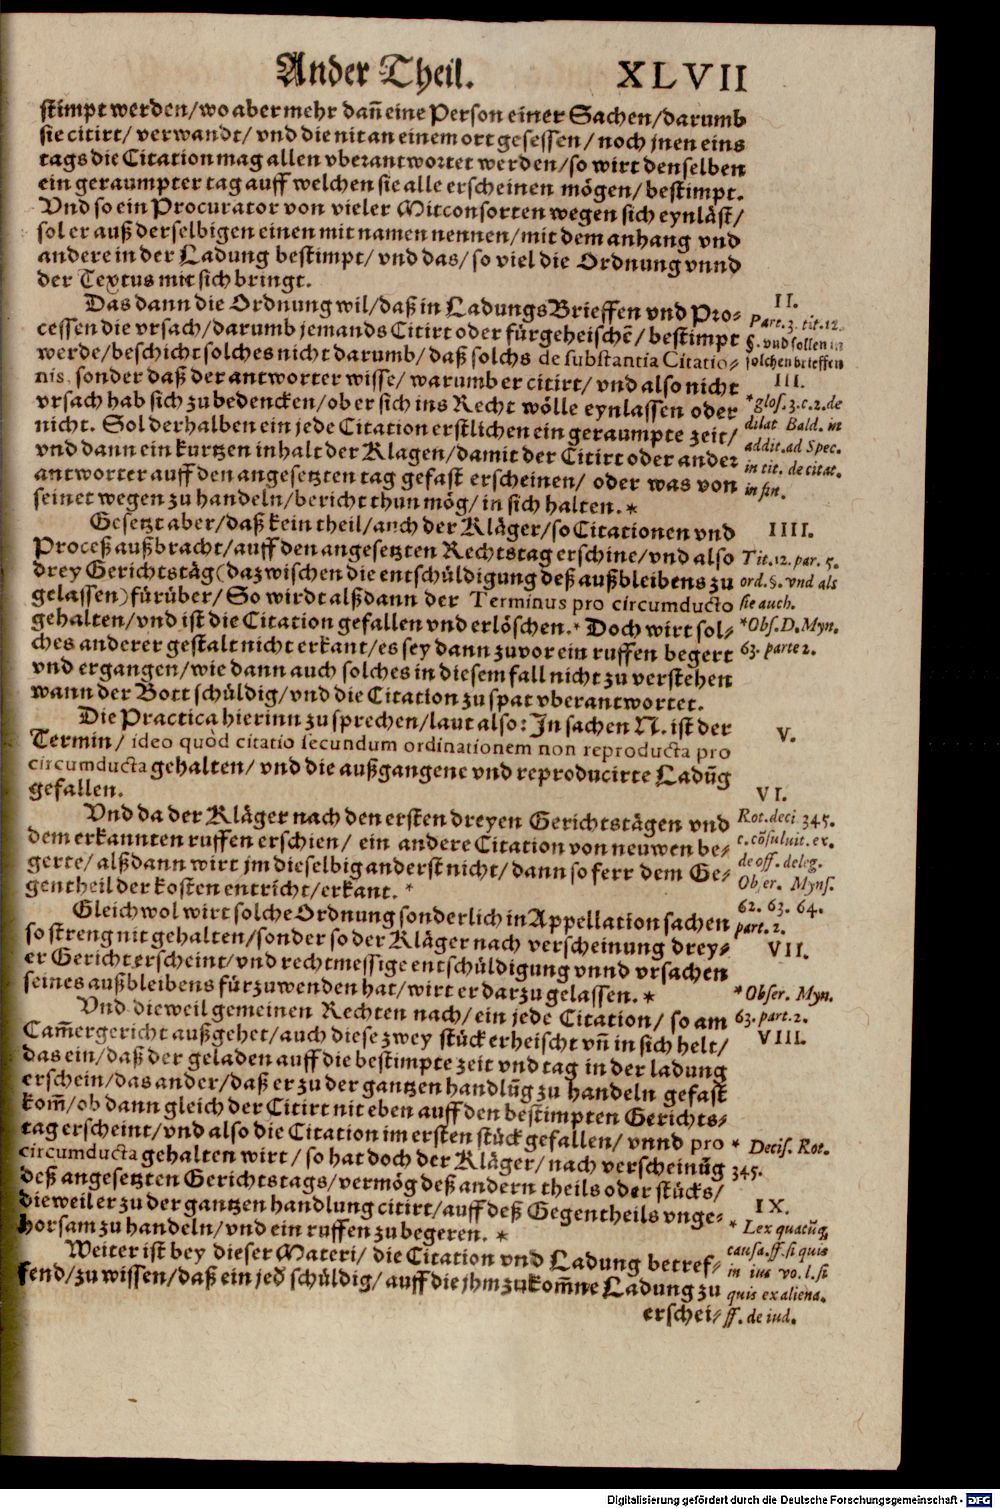 Ander Theil. XLVII
stimpt werden/wo aber mehr dañ eine Person einer Sachen/darumb
sie citirt/ verwandt/ vnd die nit an einem ort gesessen/ noch jnen eins
tags die Citation mag allen vberantwortet werden/so wirt denselben
ein geraumpter tag auff welchen sie alle erscheinen mögen/ bestimpt.
Vnd so ein Procurator von vieler Mitconsorten wegen sich eynläst/
sol er auß derselbigen einen mit namen nennen/mit dem anhang vnd
andere in der Ladung bestimpt/ vnd das/ so viel die Ordnung vnnd
der Textus mit sich bringt.
Das dann die Ordnung wil/daß in Ladungs Brieffen vnd Pro-
cessen die vrsach/darumb jemands Citirt oder fürgeheischẽ/ bestimpt
werde/beschicht solches nicht darumb/ daß solchs de substantia Citatio-
nis, sonder daß der antworter wisse/ warumb er citirt/ vnd also nicht
vrsach hab sich zu bedencken/ob er sich ins Recht wölle eynlassen oder
nicht. Sol derhalben ein jede Citation erstlichen ein geraumpte zeit/
vnd dann ein kurtzen inhalt der Klagen/damit der Citirt oder ander
antworter auff den angesetzten tag gefast erscheinen/ oder was von
seinet wegen zu handeln/bericht thun mög/ in sich halten. *
Gesetzt aber/daß kein theil/auch der Kläger/so Citationen vnd
Proceß außbracht/auff den angesetzten Rechtstag erschine/vnd also
drey Gerichtstäg(dazwischen die entschüldigung deß außbleibens zu
gelassen) fürüber/ So wirdt alßdann der Terminus pro circumducto
gehalten/vnd ist die Citation gefallen vnd erlöschen.* Doch wirt sol-
ches anderer gestalt nicht erkant/es sey dann zuvor ein ruffen begert
vnd ergangen/wie dann auch solches in diesem fall nicht zu verstehen
wann der Bott schüldig/vnd die Citation zu spat vberantwortet.
Die Practica hierinn zu sprechen/laut also: In sachen N. ist der
Termin/ ideo quòd citatio secundum ordinationem non reproducta pro
circumducta gehalten/ vnd die außgangene vnd reproducirte Ladũg
gefallen.
Vnd da der Kläger nach den ersten dreyen Gerichtstägen vnd
dem erkannten ruffen erschien/ ein andere Citation von neuwen be-
gerte/ alßdann wirt jm dieselbig anderst nicht/ dann so ferr dem Ge-
gentheil der kosten entricht/erkant. *
Gleichwol wirt solche Ordnung sonderlich in Appellation sachen
so streng nit gehalten/sonder so der Kläger nach verscheinung drey-
er Gericht erscheint/vnd rechtmessige entschüldigung vnnd vrsachen
seines außbleibens fürzuwenden hat/wirt er darzu gelassen. *
Vnd dieweil gemeinen Rechten nach/ ein jede Citation/ so am
Cam̃ergericht außgehet/auch diese zwey stück erheischt vñ in sich helt/
das ein/daß der geladen auff die bestimpte zeit vnd tag in der ladung
erschein/das ander/daß er zu der gantzen handlũg zu handeln gefast
kom̃/ob dann gleich der Citirt nit eben auff den bestimpten Gerichts-
tag erscheint/vnd also die Citation im ersten stück gefallen/ vnnd pro
circumducta gehalten wirt/ so hat doch der Kläger/nach verscheinũg
deß angesetzten Gerichtstags/vermög deß andern theils oder stücks/
dieweil er zu der gantzen handlung citirt/auff deß Gegentheils vnge-
horsam zu handeln/vnd ein ruffen zu begeren. *
Weiter ist bey dieser Materi/ die Citation vnd Ladung betref-
fend/zu wissen/daß ein jed̃ schüldig/ auff die jhm zukom̃ne Ladung zu
erschei-
II.
Part. 3. tit. 12.
§. vnd sollen in
solchen brieffen
III.
*glos. 3. c. 2. de
dilat. Bald. in
addit. ad Spec.
in tit. de citat.
in fin.
IIII.
Tit. 12. par. 5.
ord. §. vnd als
sie auch.
*Obs. D. Myn.
63. parte 2.
V.
VI.
Rot. deci 345.
c. cõsuluit. ex.
de off. deleg.
Obser. Myns.
62. 63. 64.
part. 2.
VII.
*Obser. Myn.
63. part. 2.
VIII.
* Decis. Rot.
345.
IX.
* Lex quacũq,
causa. ff. si quis
in ius vo. l. si
quis ex aliena.
ff. de iud.
Digitalisierung gefördert durch die Deutsche Forschungsgemeinschaft - DFG